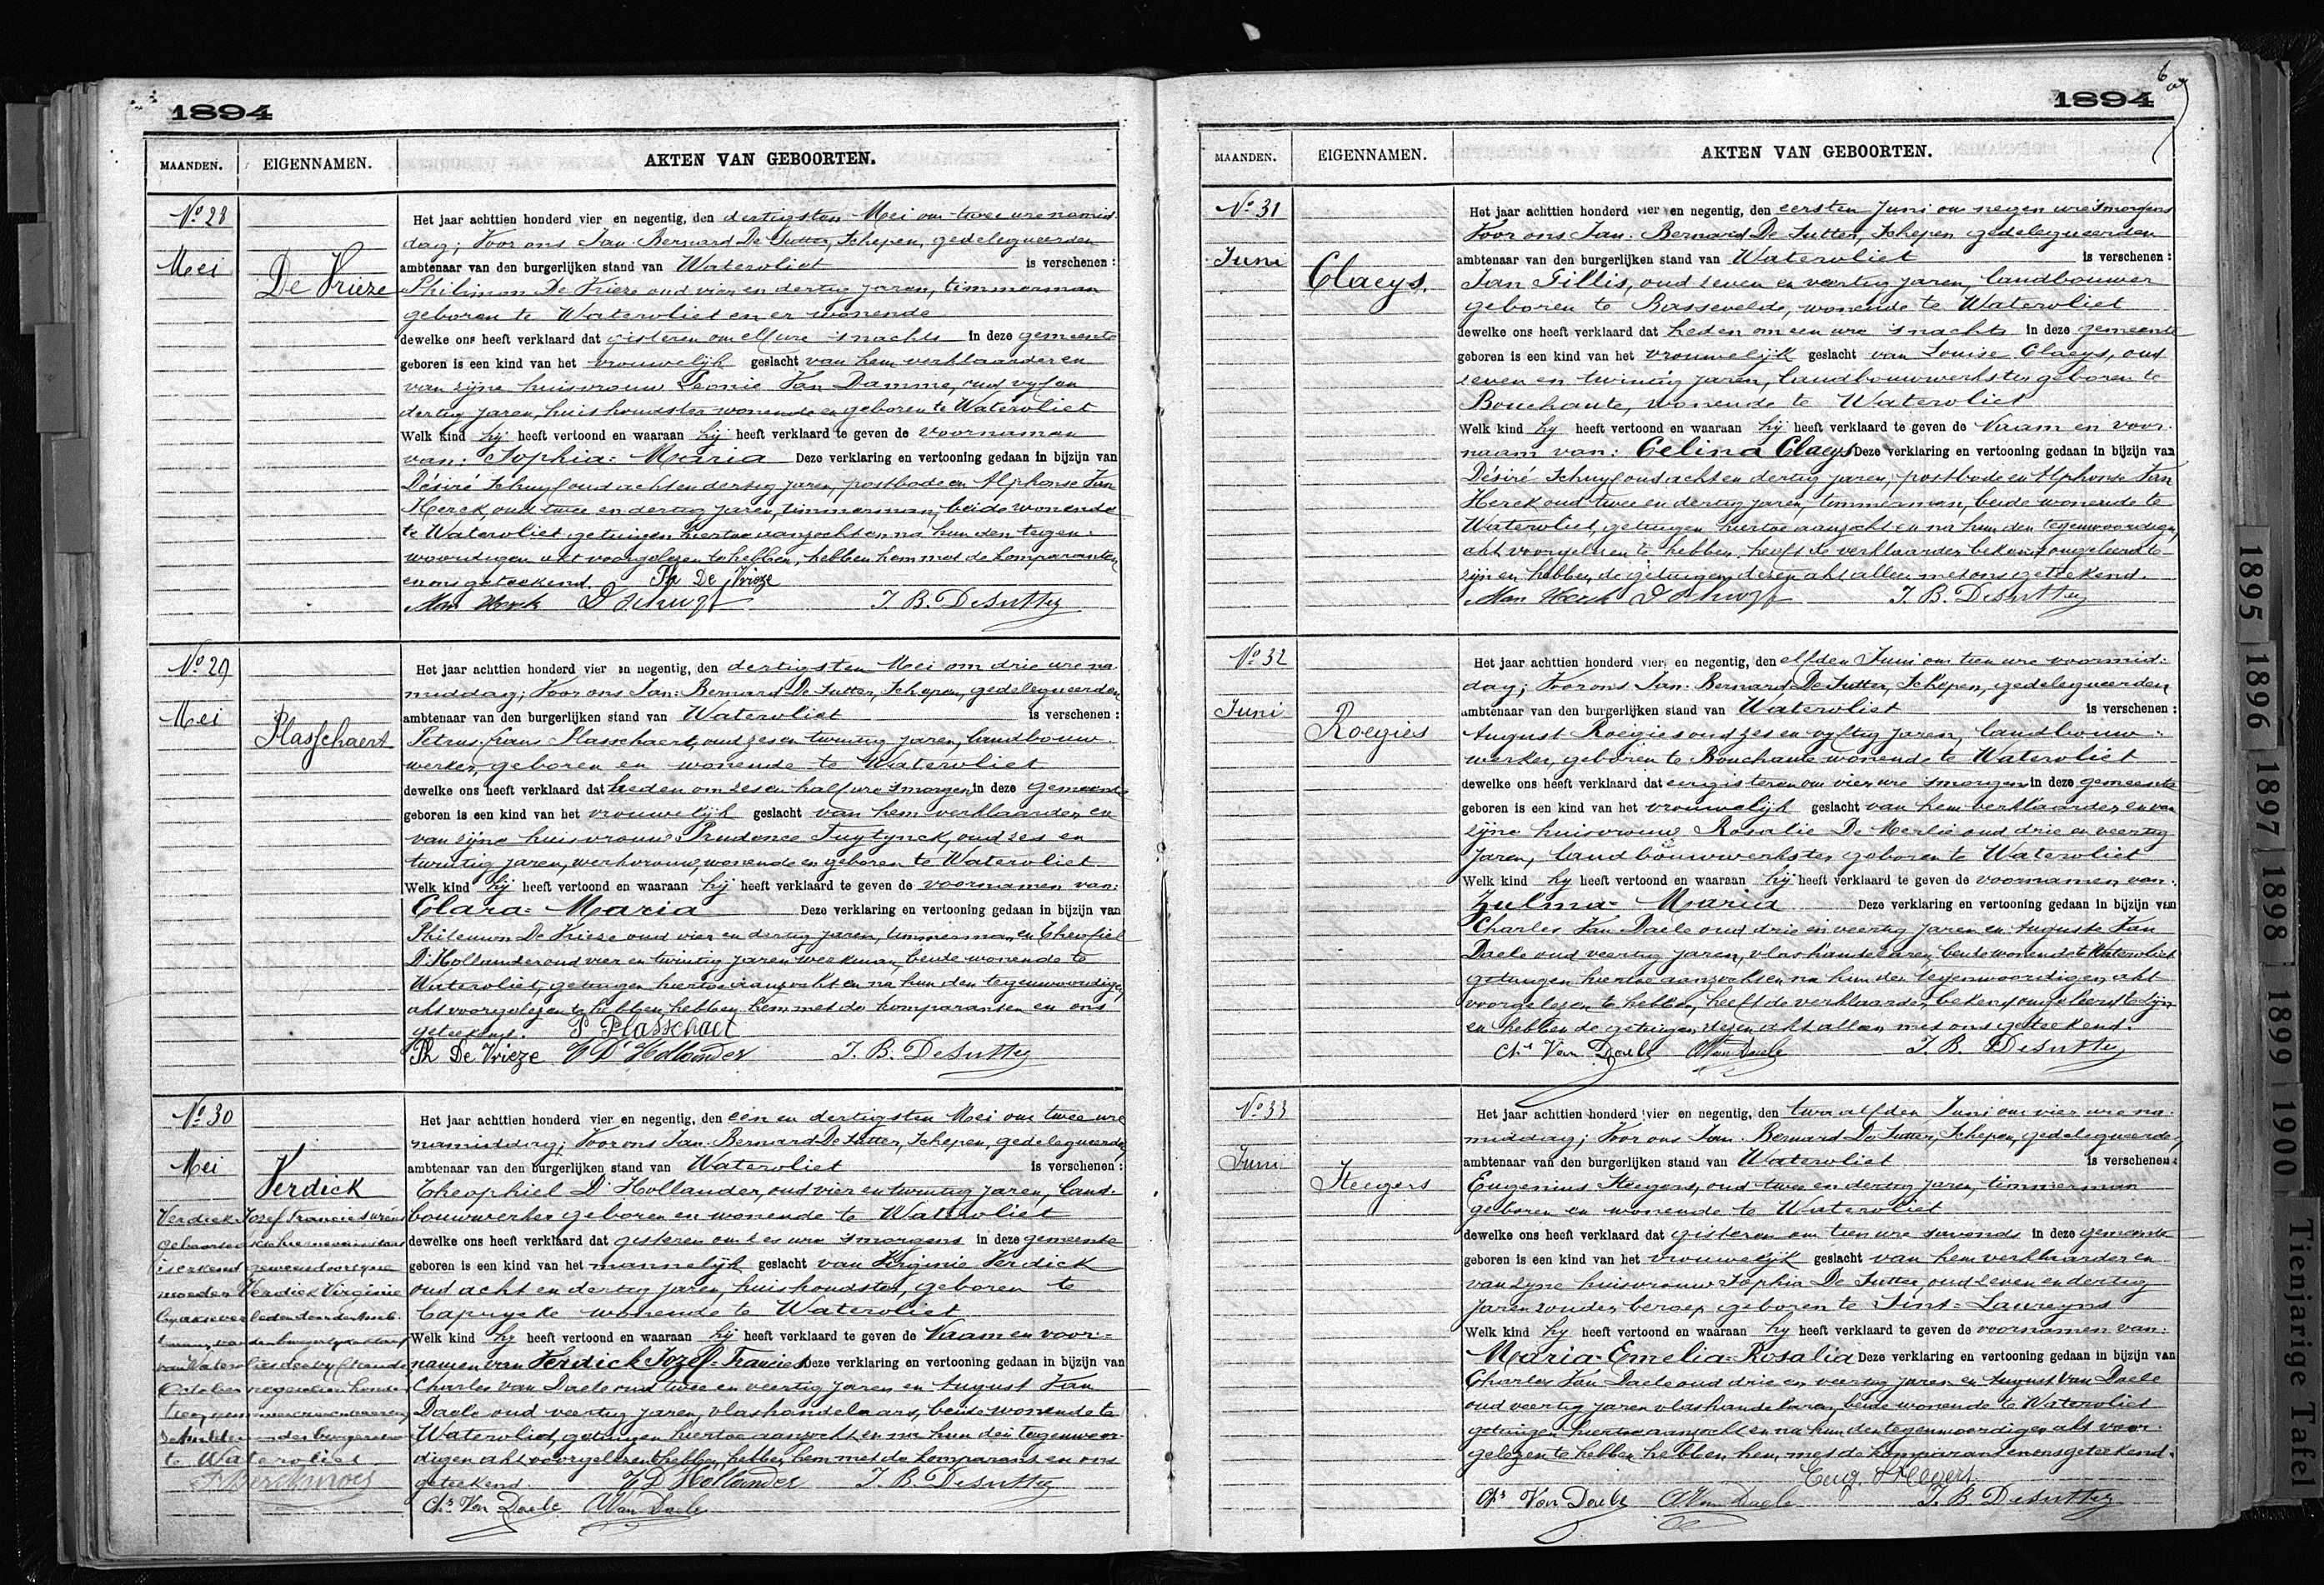 1894
MAANDEN. EIGENNAMEN. AKTEN VAN GEBOORTEN.
No 28
Mei
De Vrieze
Het jaar achttien honderd vier en negentig, den dertigsten Mei om twee ure namid-
dag; Voor ons Jan-Bernard De Sutter, Schepen, gedelegueerden
ambtenaar van den burgerlijken stand van Watervliet is verschenen:
Philimon De Vrieze oud vier en dertig jaren, timmerman
geboren te Watervliet en er wonende
dewelke ons heeft verklaard dat gisteren om elf ure 'snachts in deze gemeente
geboren is een kind van het vrouwelijk geslacht van hem verklaarder en
van zijne huisvrouw Leonie Van Damme, oud vyf en
dertig jaren, huishoudster wonende en geboren te Watervliet
Welk kind hij heeft vertoond en waaraan hij heeft verklaard te geven de voornamen
van: Sophia-Maria Deze verklaring en vertooning gedaan in bijzijn van
Désiré Schuyf oud acht en dertig jaren, postbode en Alphonse Van
Herck, oud twee en dertig jaren, timmerman, beide wonende
te Watervliet getuigen hiertoe aanzocht en na hun den tegen-
woordigen akt voorgelezen te hebben, hebben hem met de komparanten
en ons geteekend. Ph De Vrieze
A Van Herck D Schuyf J. B. DeSutter
No 29
Mei
Plasschaert
Het jaar achttien honderd vier en negentig, den dertigsten Mei om drie ure na-
middag; Voor ons Jan-Bernard De Sutter, Schepen, gedelegueerden
ambtenaar van den burgerlijken stand van Watervliet is verschenen:
Petrus-frans Plasschaert, oud zes en twintig jaren, landbouw-
werker, geboren en wonende te Watervliet
dewelke ons heeft verklaard dat heden om zes en half ure 'smorgens in deze gemeente
geboren is een kind van het vrouwelijk geslacht van hem verklaarder en
van zijne huisvrouw Prudence Tuytynck, oud zes en
twintig jaren, werkvrouw, wonende en geboren te Watervliet
Welk kind hij heeft vertoond en waaraan hij heeft verklaard te geven de voornamen van:
Clara-Maria Deze verklaring en vertooning gedaan in bijzijn van
Philemon De Vrieze oud vier en dertig jaren, timmerman, en Theofiel
D'Hollander oud vier en twintig jaren werkman, beide wonende te
Watervliet, getuigen hiertoe aanzocht en na hun den tegenwoordigen
akt voorgelezen te hebben hebben hem met de komparanten en ons
geteekend. P Plasschaert
Ph De Vrieze T D'Hollander J. B. DeSutter
No 30
Mei
Verdick
Verdick Jozef Francies wiens
geboorteakt hiernevens staat
is erkend geweest door zyne
moeder Verdick Virginie
van Watervliet den vyftienden
October negentien honderd
te Watervliet.
Het jaar achttien honderd vier en negentig, den een en dertigsten Mei om twee ure
namiddag; Voor ons Jan-Bernard De Sutter, Schepen, gedelegueerden
ambtenaar van den burgerlijken stand van Watervliet is verschenen:
Theophiel D'Hollander, oud vier en twintig jaren, land-
bouwwerker geboren en wonende te Watervliet
dewelke ons heeft verklaard dat gisteren om zes ure 'smorgens in deze gemeente
geboren is een kind van het mannelijk geslacht van Virginie Verdick
oud acht en dertig jaren, huishoudster, geboren te
Caprycke wonende te Watervliet
Welk kind hy heeft vertoond en waaraan hij heeft verklaard te geven de Naam en voor-
namen van Verdick Jozef-Francies Deze verklaring en vertooning gedaan in bijzijn van
Charles van Daele oud twee en veertig jaren en August Van
Daele oud veertig jaren, vlashandelaars, beide wonende te
Watervliet, getuigen hiertoe aanzocht en na hun den tegenwoor-
digen akt voorgelezen te hebben, hebben hem met de komparant en ons
geteekend T D'Hollander J. B. DeSutter
Chs Van Daele A Van Daele
6
1894
MAANDEN. EIGENNAMEN. AKTEN VAN GEBOORTEN.
No 31
Juni
Claeys.
Het jaar achttien honderd vier en negentig, den eersten Juni om negen ure 'smorgens
Voor ons Jan-Bernard De Sutter, Schepen gedelegueerden
ambtenaar van den burgerlijken stand van Watervliet is verschenen:
Jan Gillis, oud zeven en veertig jaren, landbouwer
geboren te Bassevelde, wonende te Watervliet
dewelke ons heeft verklaard dat heden om een ure 'snachts in deze gemeente
geboren is een kind van het vrouwelijk geslacht van Louise Claeys, oud
zeven en twintig jaren, landbouwwerkster geboren te
Bouchaute, wonende te Watervliet
Welk kind hy heeft vertoond en waaraan hij heeft verklaard te geven de Naam en voor-
naam van: Celina Claeys Deze verklaring en vertooning gedaan in bijzijn van
Désiré Schuyf oud acht en dertig jaren, postbode en Alphonse Van
Herck oud twee en dertig jaren, timmerman, beide wonende te
Watervliet, getuigen hiertoe aanzocht en na hun den tegenwoordigen
akt voorgelezen te hebben, heeft de verklaarder bekend ongeleerd te
zijn en hebben de getuigen dezen akt alleen met ons geteekend.
A Van Herck D Schuyf J. B. DeSutter
No 32
Juni
Roegies
Het jaar achttien honderd vier en negentig, den elfden Juni om tien ure voormid-
dag; Voor ons Jan-Bernard De Sutter, Schepen, gedelegueerden
ambtenaar van den burgerlijken stand van Watervliet is verschenen:
August Roegies oud zes en vyftig jaren, landbouw-
werker, geboren te Bouchaute wonende te Watervliet
dewelke ons heeft verklaard dat eergisteren om vier ure 'smorgens in deze gemeente
geboren is een kind van het vrouwelijk geslacht van hem verklaarder, en van
zijne huisvrouw Rosalie De Merlie oud drie en veertig
jaren, landbouwwerkster geboren te Watervliet
Welk kind hy heeft vertoond en waaraan hij heeft verklaard te geven de voornamen van:
Zulma-Maria Deze verklaring en vertooning gedaan in bijzijn van
Charles Van Daele oud drie en veertig jaren en Auguste Van
Daele oud veertig jaren, vlashandelaren, beide wonende te Watervliet
getuigen hiertoe aanzocht en na hun den tegenwoordigen akt
voorgelezen te hebben, heeft de verklaarder, bekend ongeleerd te zijn
en hebben de getuigen dezen akt alleen met ons geteekend.
Chs Van Daele A Van Daele J. B. DeSutter
No 33
Juni
Steegers
Het jaar achttien honderd vier en negentig, den twaalfden Juni om vier ure na-
middag; Voor ons Jan-Bernard De Sutter, Schepen, gedelegueerden
ambtenaar van den burgerlijken stand van Watervliet is verschenen:
Eugenius Steegers, oud twee en dertig jaren, timmerman
geboren en wonende te Watervliet
dewelke ons heeft verklaard dat gisteren om tien ure savonds in deze gemeente
geboren is een kind van het vrouwelijk geslacht van hem verklaarder en
van zyne huisvrouw Sophia De Sutter, oud zeven en dertig
jaren zonder beroep geboren te Sint-Laureyns
Welk kind hy heeft vertoond en waaraan hy heeft verklaard te geven de voornamen van:
Maria-Emelia-Rosalia Deze verklaring en vertooning gedaan in bijzijn van
Charles Van Daele oud drie en veertig jaren en August Van Daele
oud veertig jaren vlashandelaren, beide wonende te Watervliet
getuigen hiertoe aanzocht en na hun den tegenwoordigen akt voor-
gelezen te hebben hebben hem, met de komparant en ons geteekend.
Eug. Steegers
Chs Van Daele A Van Daele J. B DeSutter
1895 1896 1897 1898 1899 1900 Tienjarige Tafel